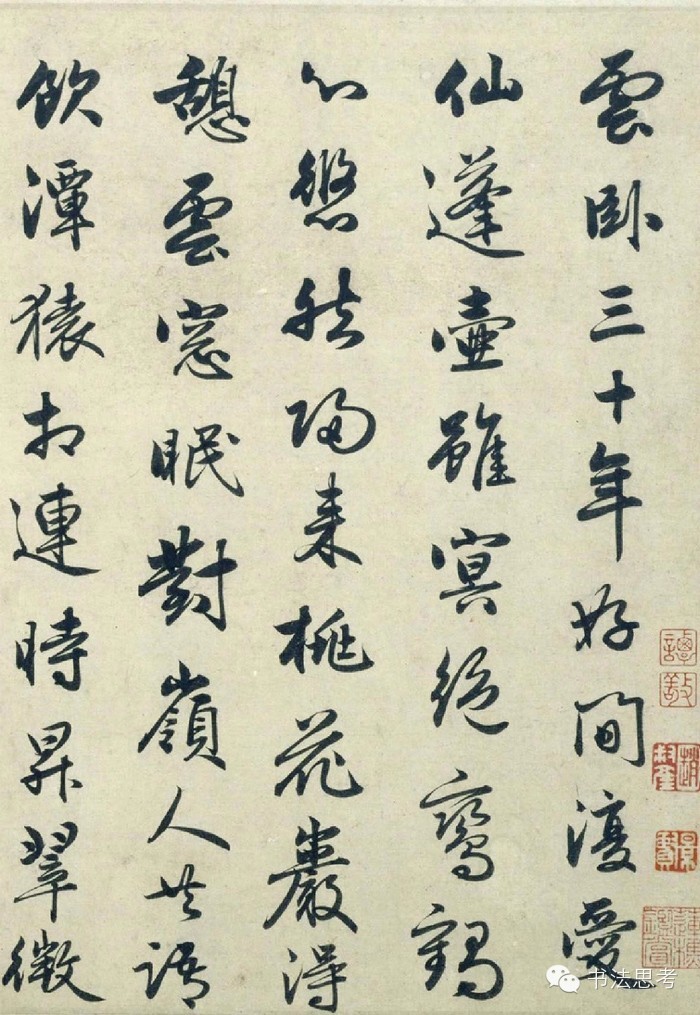 雲卧三十年好閒復愛
仙蓬壺雖冥絶鸞鶴
心悠然歸来桃花巖得
憩雲窓眠對嶺人共語
飲潭猿相連時昇翠微
书法思考